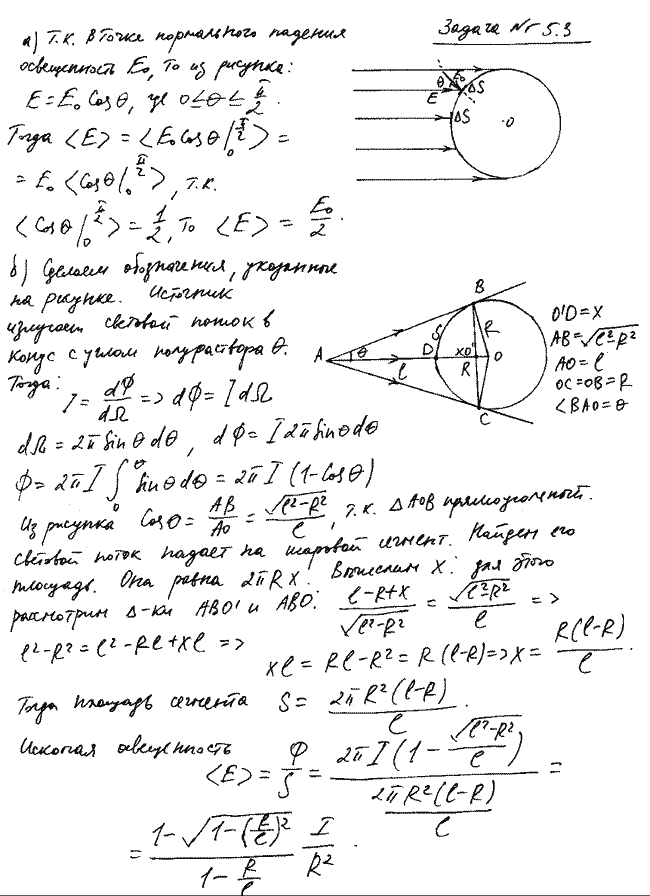 Задача № 5.3
а) Т.к. в точке нормального падения
освещенность E₀, то из рисунка:
E = E₀ Cos θ, где 0 ≤ θ ≤ π/2.
Тогда <E> = <E₀ Cos θ |₀^(π/2)> =
= E₀ <Cos θ |₀^(π/2)>, т.к.
<Cos θ |₀^(π/2)> = 1/2, то <E> = E₀/2.
θ E₀ ΔS
E ΔS
O
б) Сделаем обозначения, указанные
на рисунке. Источник
излучает световой поток в
конус с углом полураствора θ.
Тогда:
I = dΦ/dΩ => dΦ = I dΩ
dΩ = 2π Sin θ dθ, dΦ = I 2π Sin θ dθ
B
S R
A θ D x O' O
l R
C
O'D = x
AB = √(l² - R²)
AO = l
OC = OB = R
∠BAO = θ
Φ = 2π I ∫₀^θ Sin θ dθ = 2π I (1 - Cos θ)
Из рисунка Cos θ = AB/AO = √(l² - R²)/l, т.к. ΔAOB прямоугольный.
Световой поток падает на шаровой сегмент. Найдем его
площадь. Она равна 2πRx. Вычислим x: для этого
рассмотрим Δ-ки ABO' и ABO: (l - R + x)/√(l² - R²) = √(l² - R²)/l =>
l² - R² = l² - Rl + xl =>
xl = Rl - R² = R(l - R) => x = R(l - R)/l.
Тогда площадь сегмента S = 2πR²(l - R)/l.
Искомая освещенность
<E> = Φ/S = 2π I (1 - √(l² - R²)/l) / (2πR²(l - R)/l) =
= (1 - √(1 - (R/l)²))/(1 - R/l) I/R².